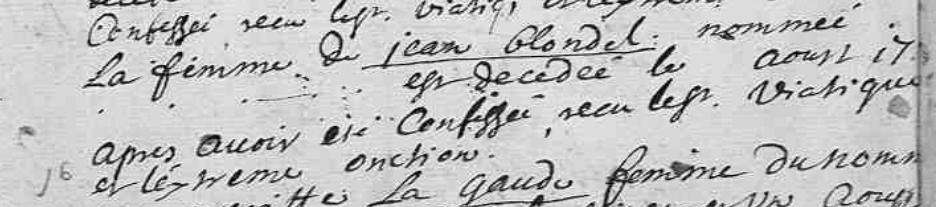 Confessé, receu le st. viatiq; et
La femme de jean blondel. nommeé
est decedeé le aoust 17
apres auoir eté Confesseé, receu le st. viatique
16 et l'extreme onction.
La gaude femme du nomm
aoust